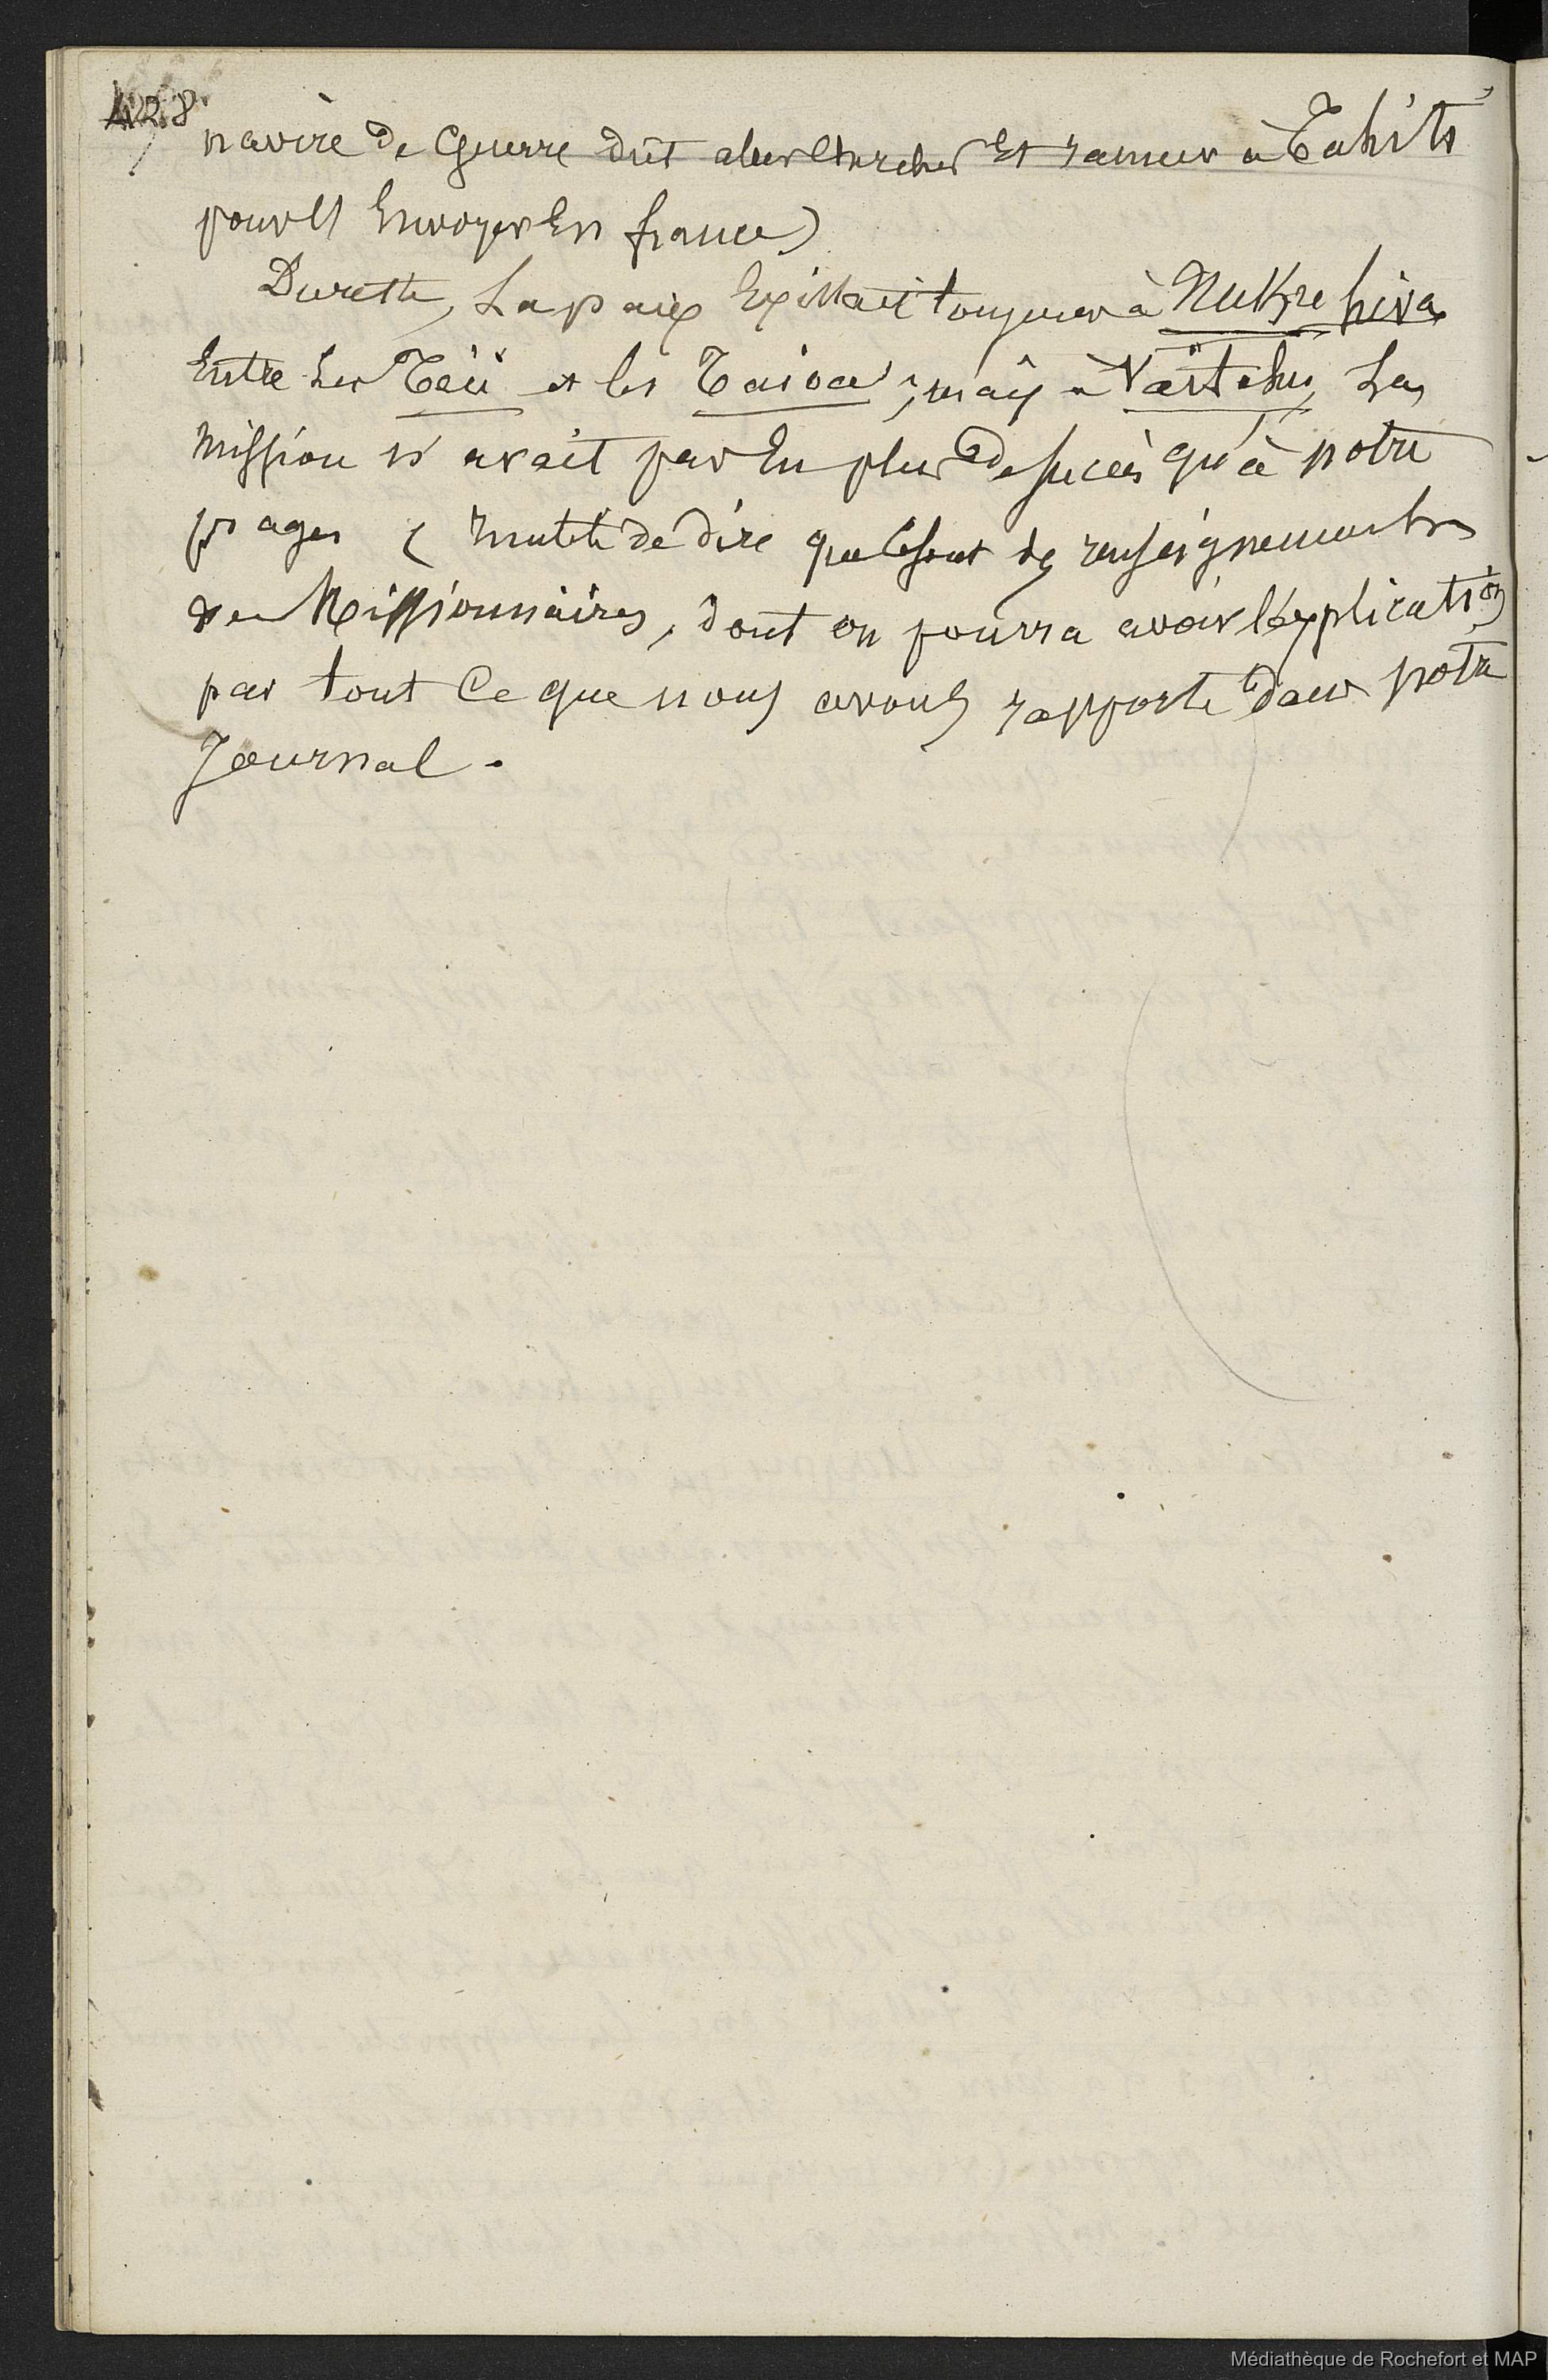 428
navire de Guerre dût aller chercher et ramener à Tahiti
pour les Envoyer En france)
Dureste, La paix Existait toujours à Nukahiva
Entre Les Teii et les Taioa; mais à Vaitahu, La
Mission n'avait pas Eu plus de succès qu'à notre
inutile de dire que ce sont des renseignements
des Missionnaires, dont on pourra avoir l'explication
par tout Ce que nous avons rapporté dans notre
Journal.
Médiathèque de Rochefort et MAP